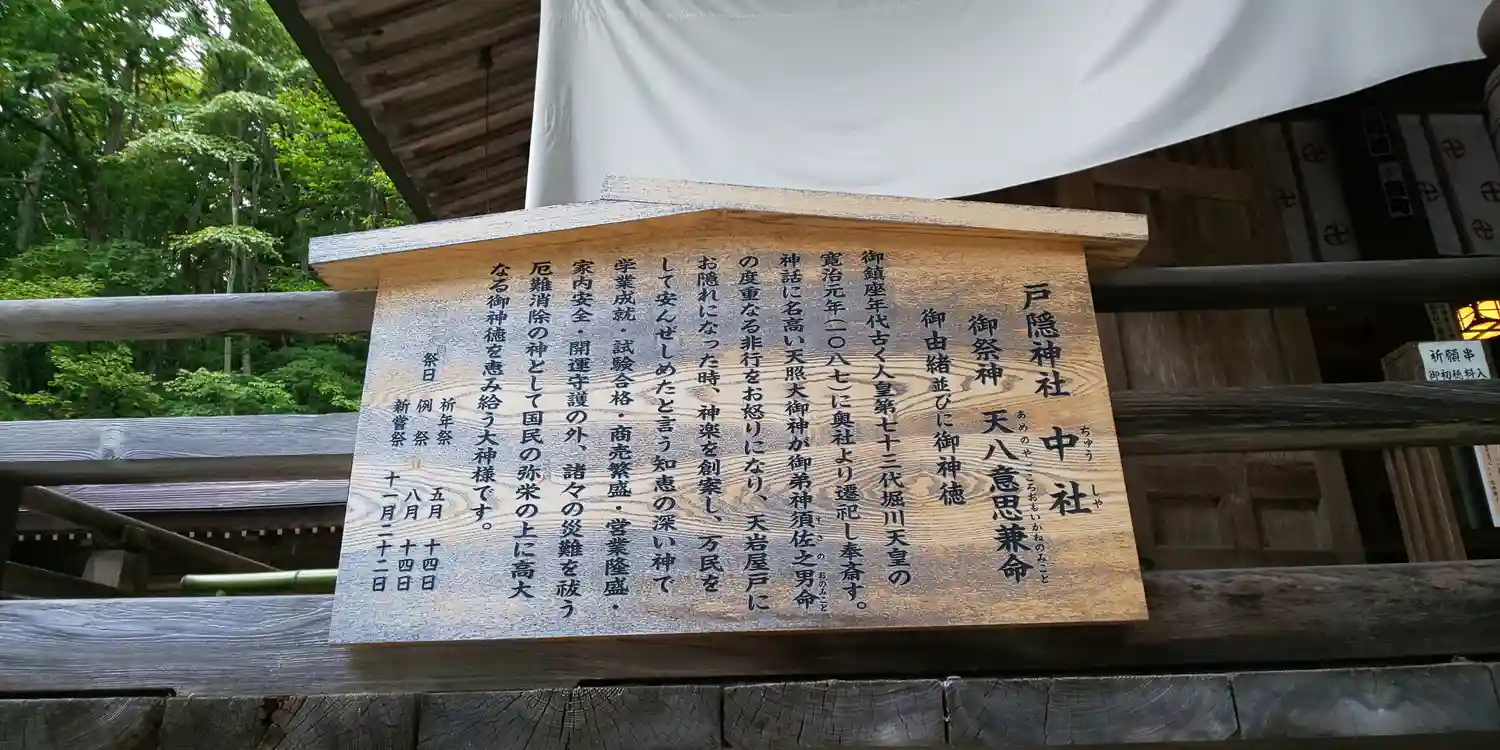 戸隠神社 中社
ちゅう しゃ
御祭神 天八意思兼命
あめのやこころおもいかねのみこと
御由緒並びに御神徳
御鎮座年代古く人皇第七十三代堀川天皇の
寛治元年（一〇八七）に奥社より遷祀し奉斎す。
神話に名高い天照大御神が御弟神須佐之男命
すさのおのみこと
の度重なる非行をお怒りになり、天岩屋戸に
お隠れになった時、神楽を創案し、万民を
して安んぜしめたと言う知恵の深い神で
学業成就・試験合格・商売繁盛・営業隆盛・
家内安全・開運守護の外、諸々の災難を祓う
厄難消除の神として国民の弥栄の上に高大
なる御神徳を恵み給う大神様です。
祭日 祈年祭 五月 十四日
例祭 八月 十四日
新嘗祭 十一月二十二日
祈願串
御初穂料入